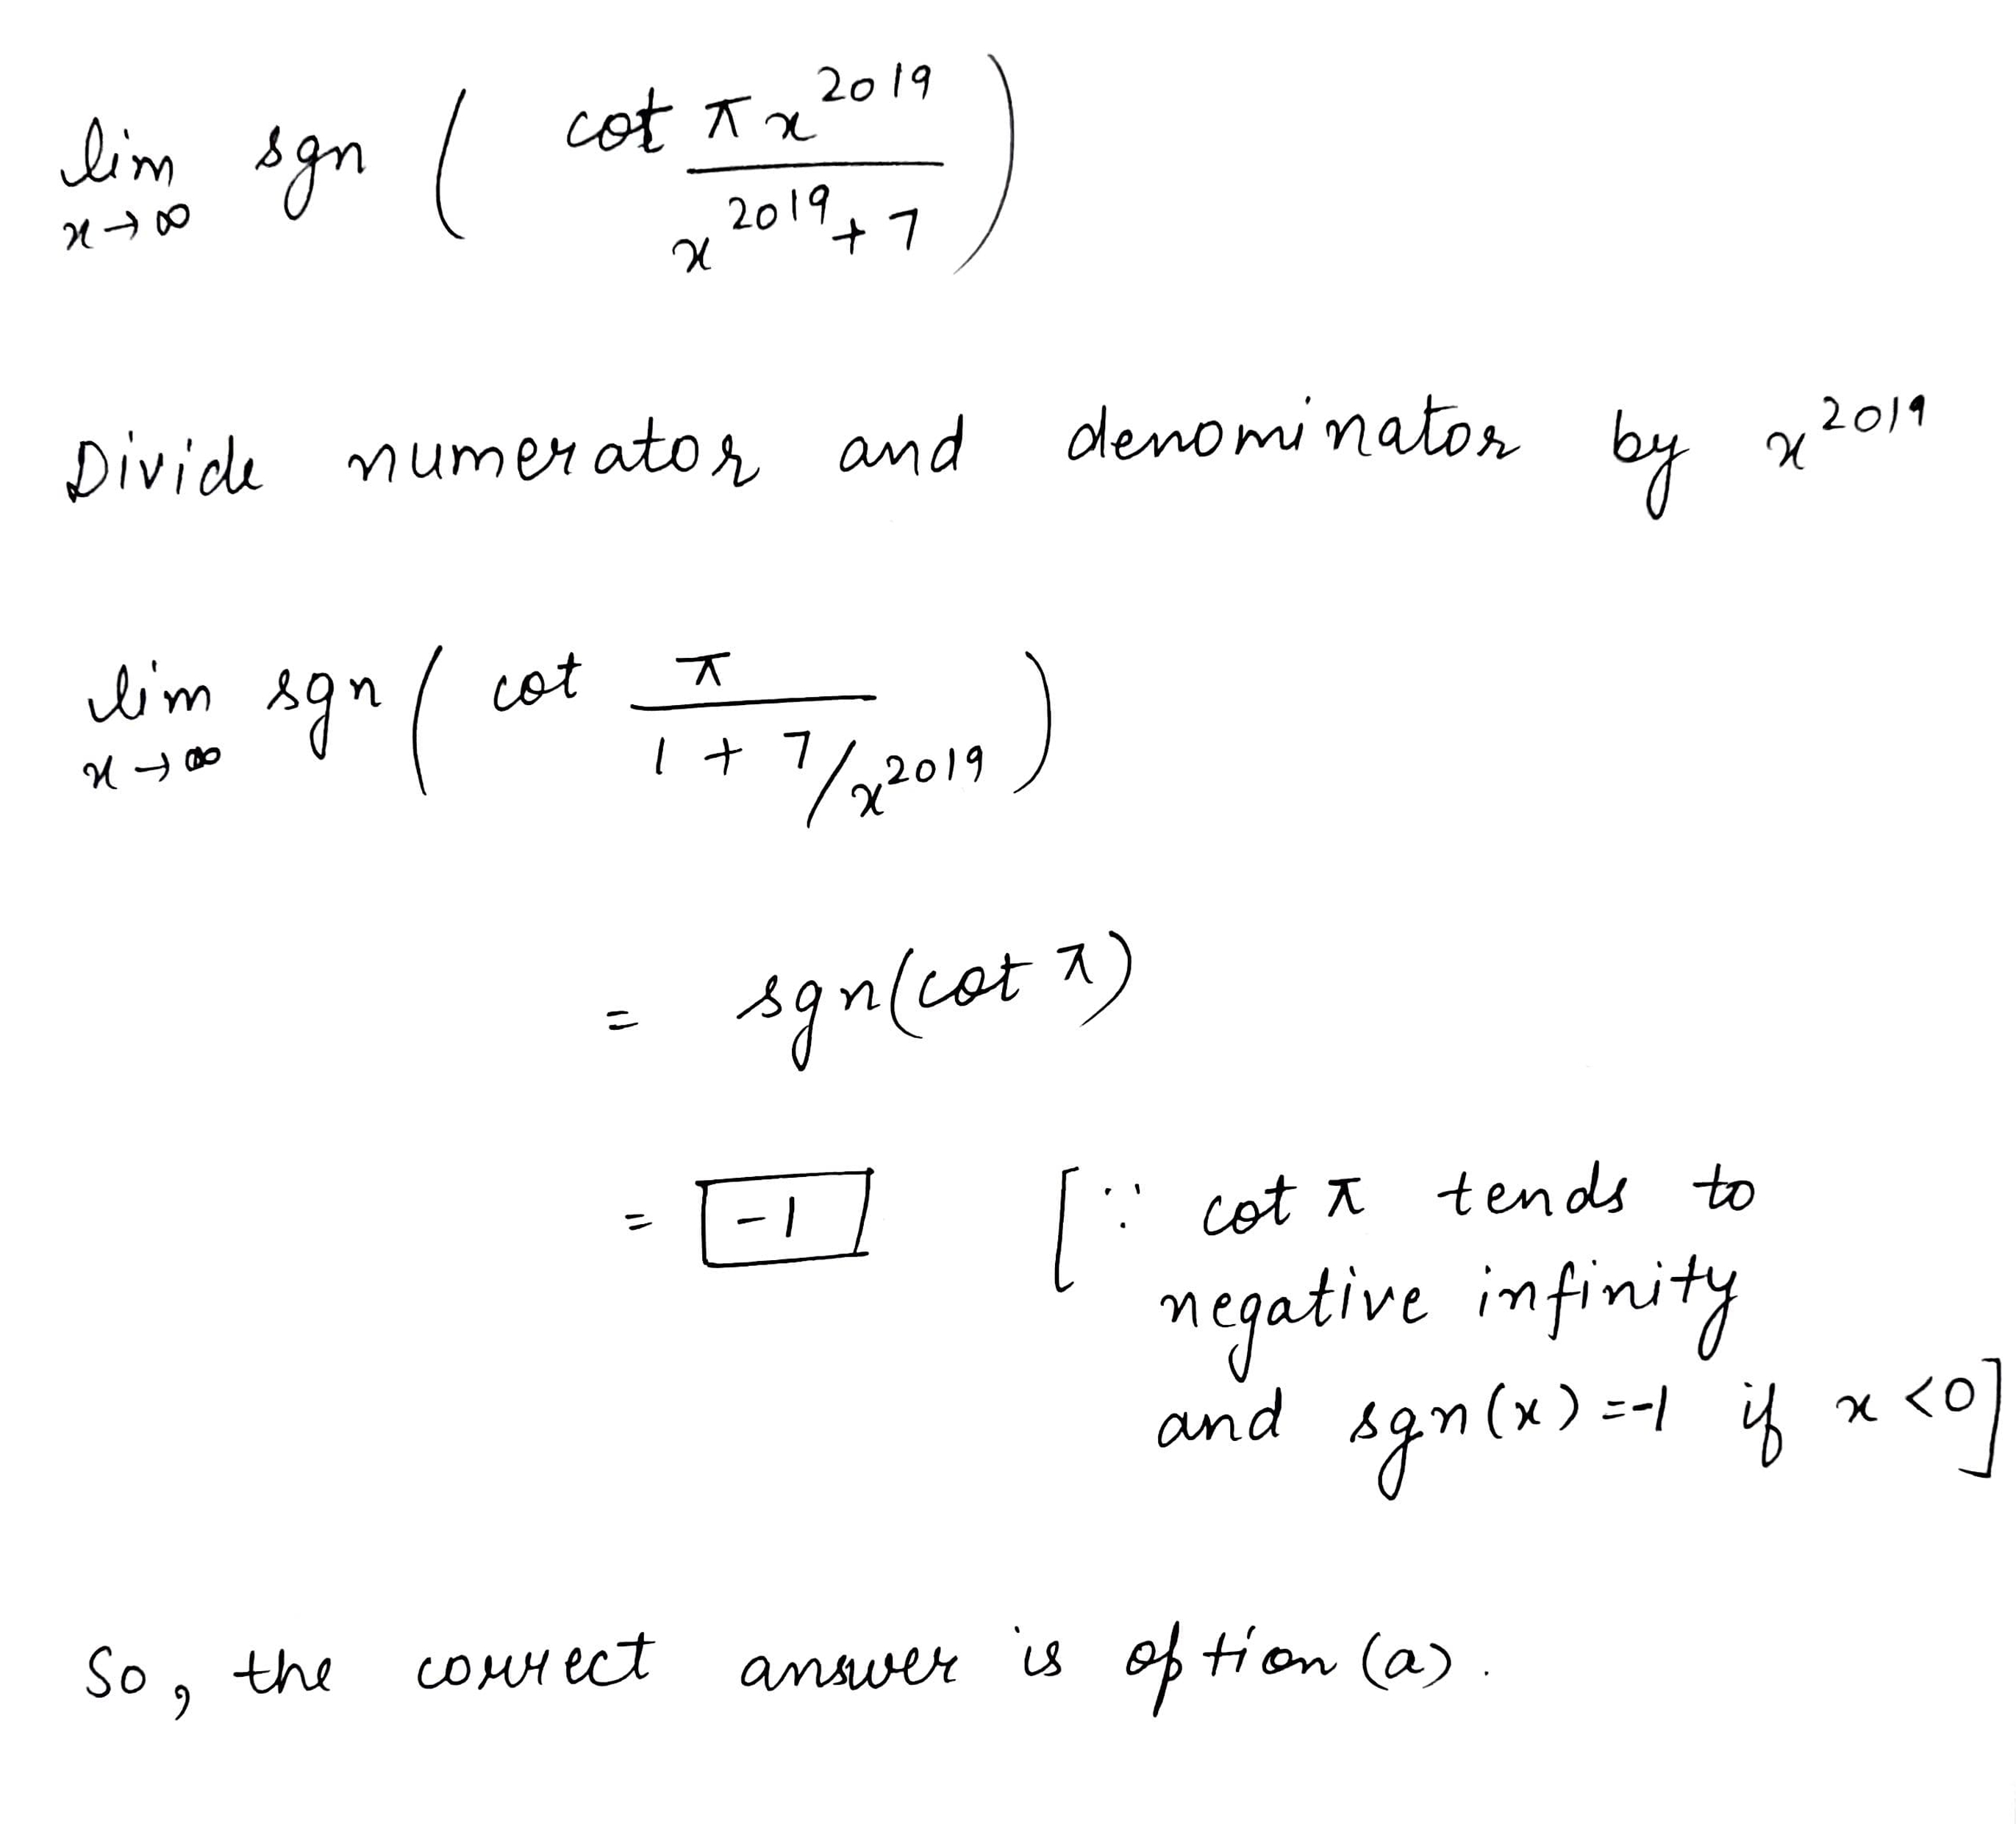 lim x→∞ sgn ( cot πx^2019 / x^2019 + 7 )
Divide numerator and denominator by x^2019
lim x→∞ sgn ( cot π / 1 + 7/x^2019 )
= sgn(cot π)
= -1 [∵ cot π tends to
negative infinity
and sgn(x) = -1 if x <0]
So, the correct answer is option (a).